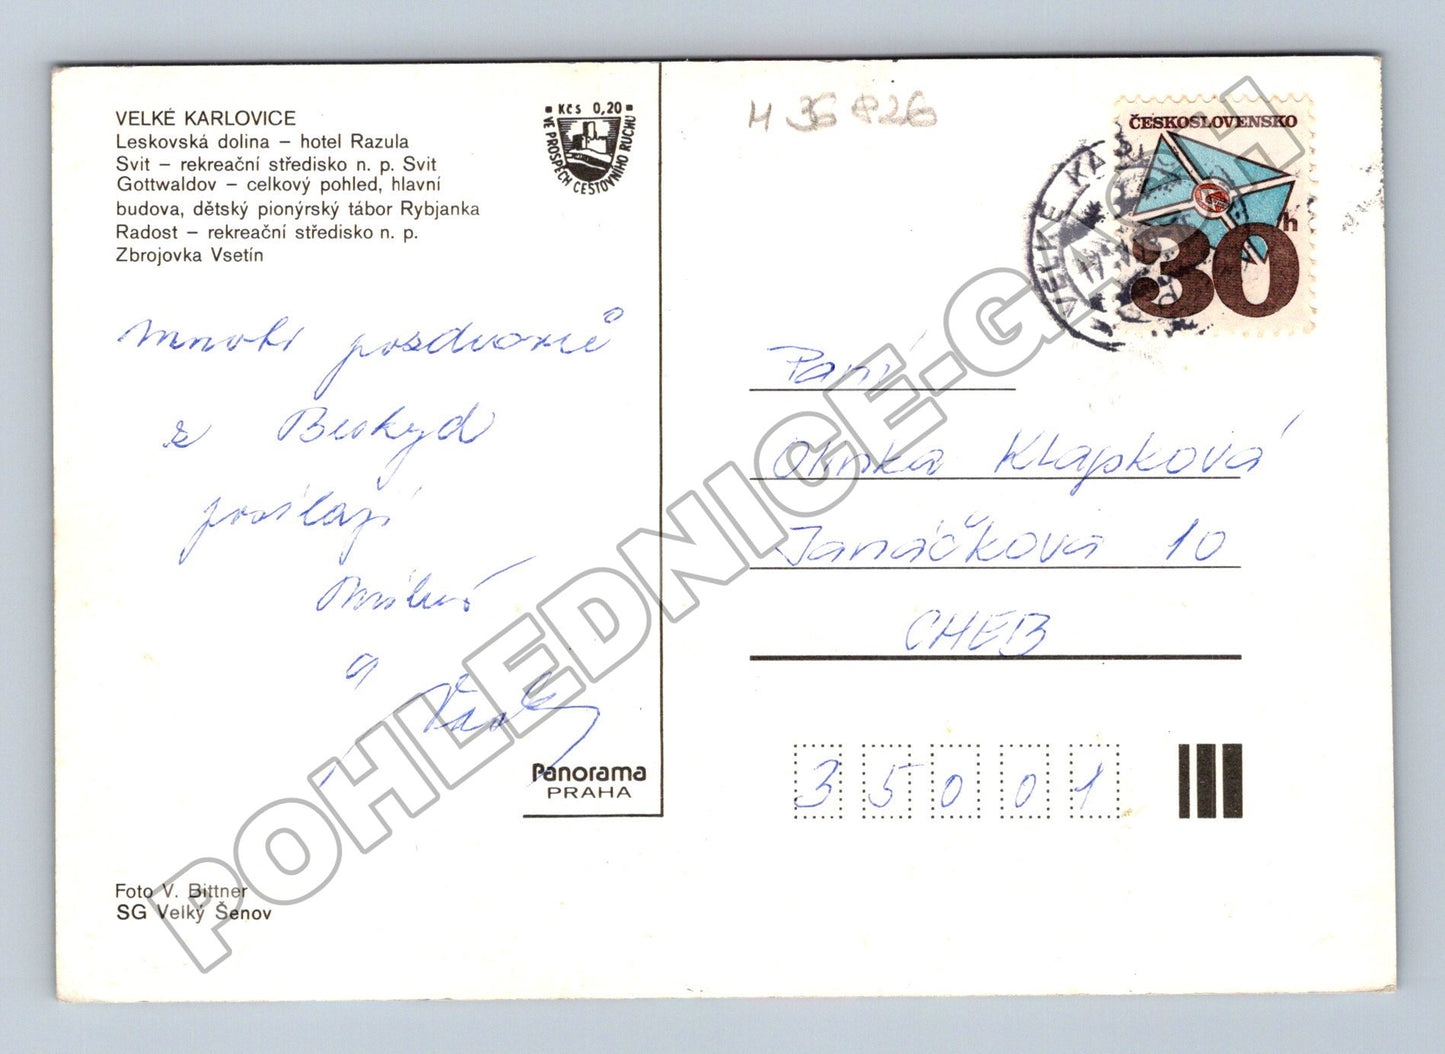 VELKÉ KARLOVICE
Leskovská dolina – hotel Razula
Svit – rekreační středisko n. p. Svit
Gottwaldov – celkový pohled, hlavní
budova, dětský pionýrský tábor Rybjanka
Radost – rekreační středisko n. p.
Zbrojovka Vsetín
Kčs 0,20
VE PROSPĚCH CESTOVNÍHO RUCHU
Mnoho pozdravů
z Beskyd
posílají
a
Panorama
PRAHA
Foto V. Bittner
SG Velký Šenov
H 36 826
ČESKOSLOVENSKO
30 h
VELKÉ KA
Paní
Olinka Klapková
Janáčkova 10
CHEB
35001
POHLEDNICE-GALCH